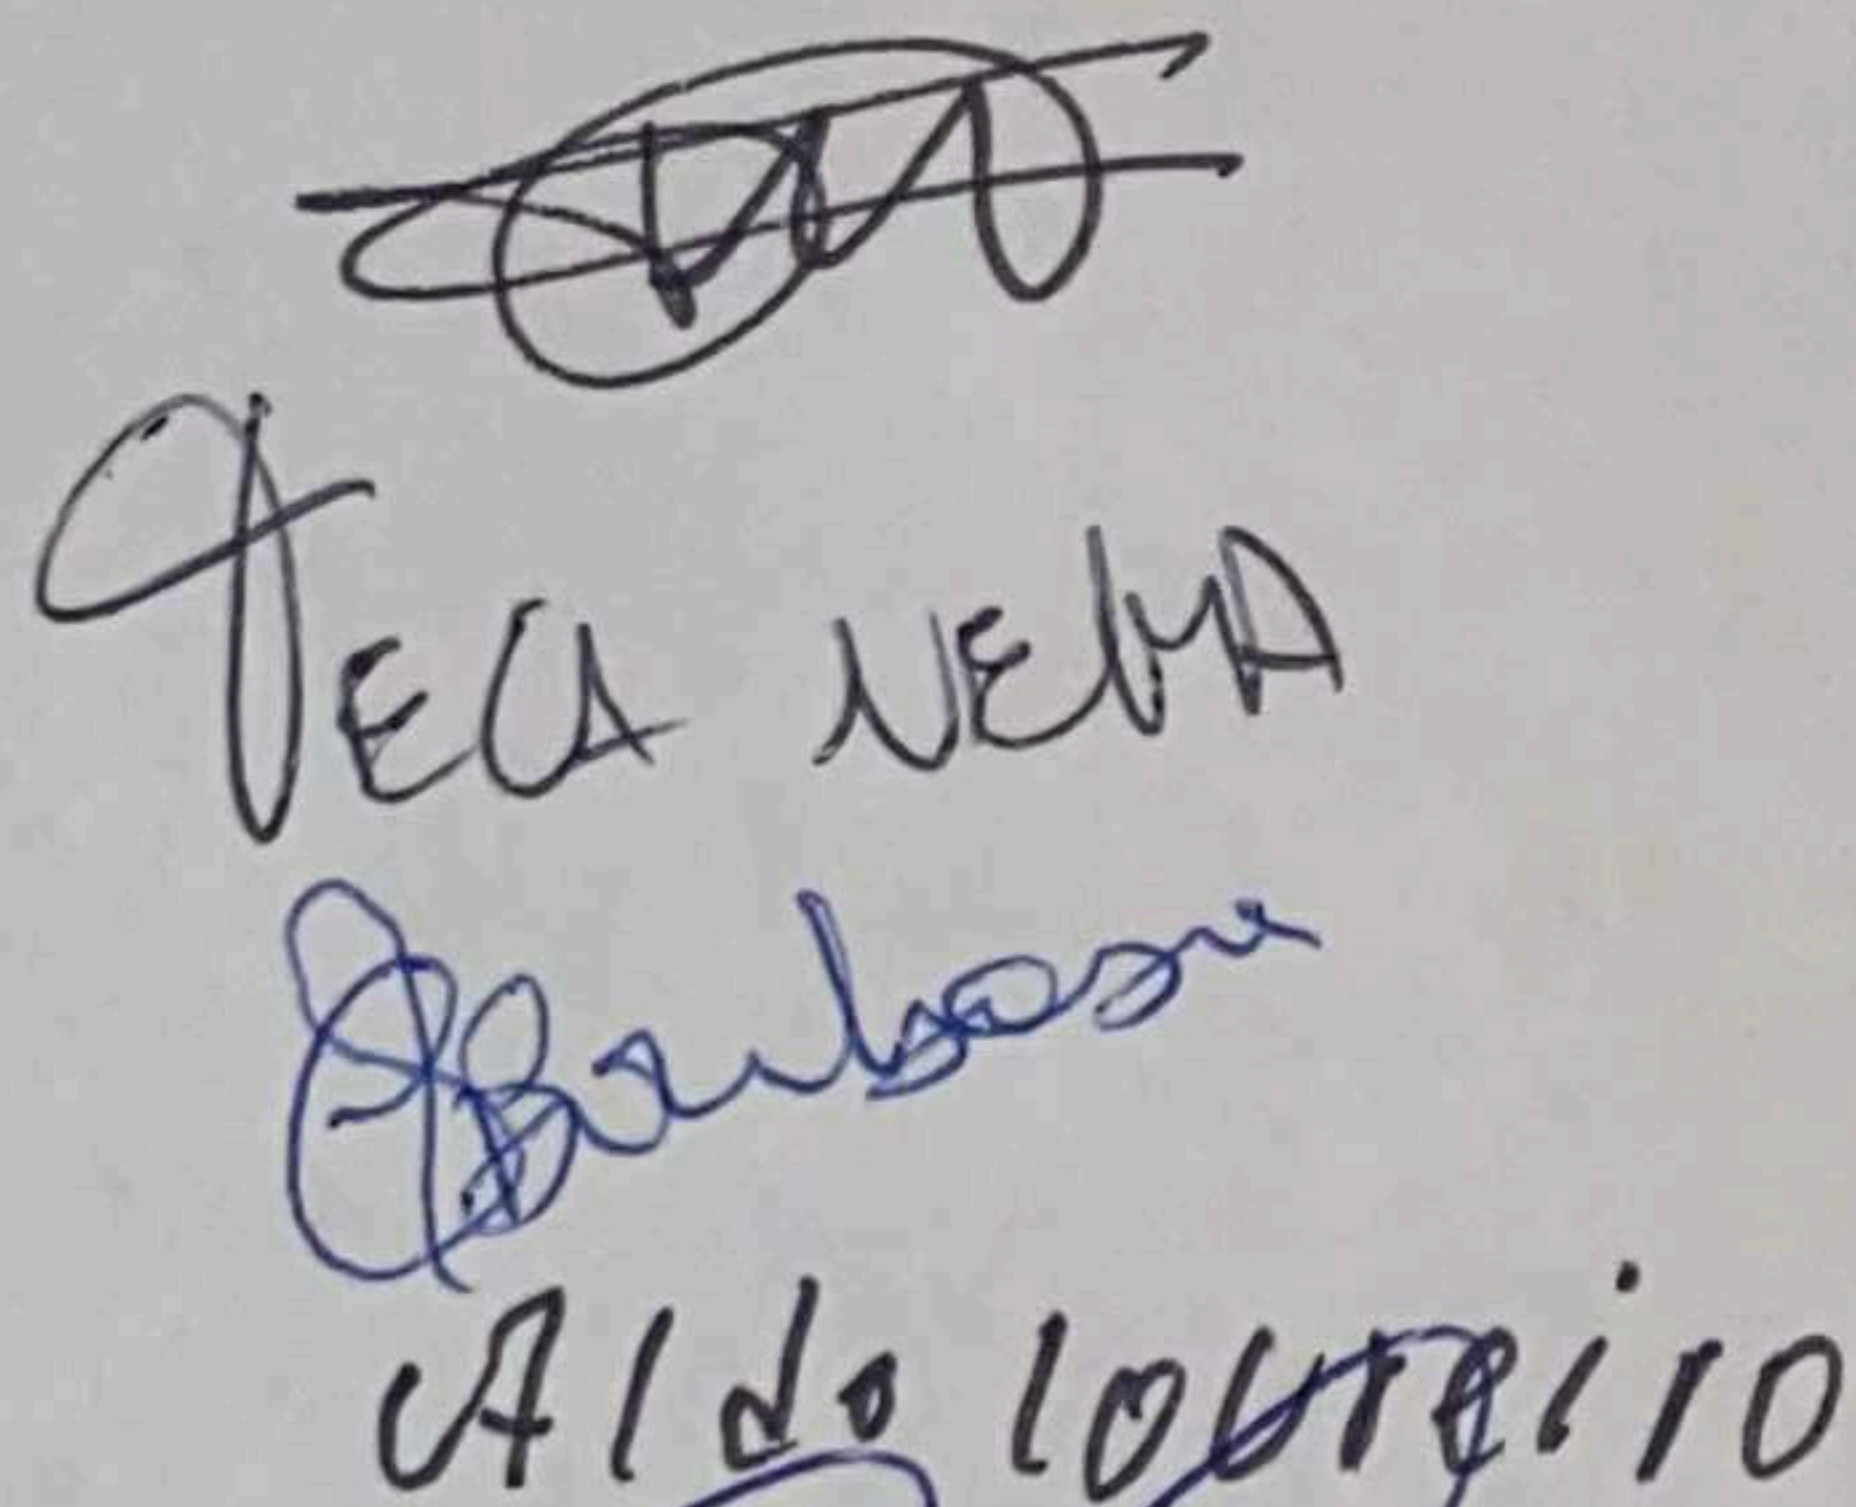 TECA NEMA
Barbosa
Aldo loureiro